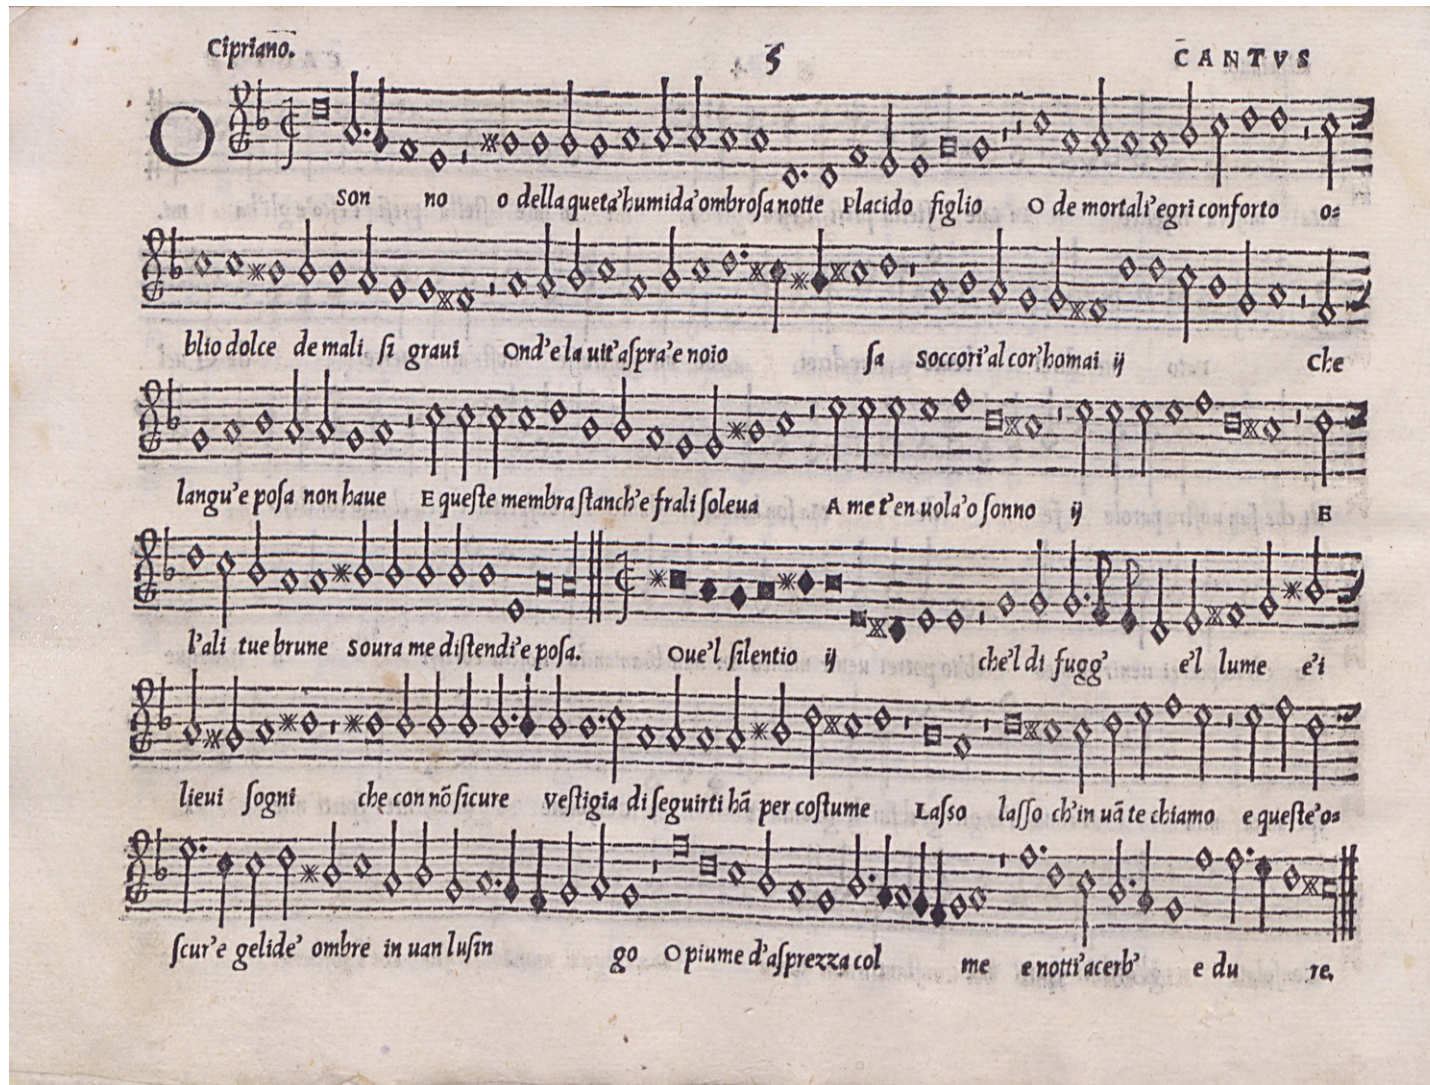 Cipriano. 5 CANTVS
O son no o della queta'humida'ombroſa notte Placido figlio O de mortali'egri conforto o=
blio dolce de mali ſi graui Ond'e la uit'aſpra'e noio ſa Soccori'al cor'homai ij Che
langu'e poſa non haue E queſte membra ſtanch'e frali ſoleua A me t'en uola'o ſonno ij E
l'ali tue brune Soura me diſtendi'e poſa. Oue'l ſilentio ij che'l di fugg' e'l lume e'i
lieui ſogni che con nõ ſicure veſtigia di ſeguirti hã per coſtume Laſſo laſſo ch'in uã te chiamo e queſte'o=
ſcur'e gelide' ombre in uan luſin go O piume d'aſprezza col me e notti'acerb' e du re.